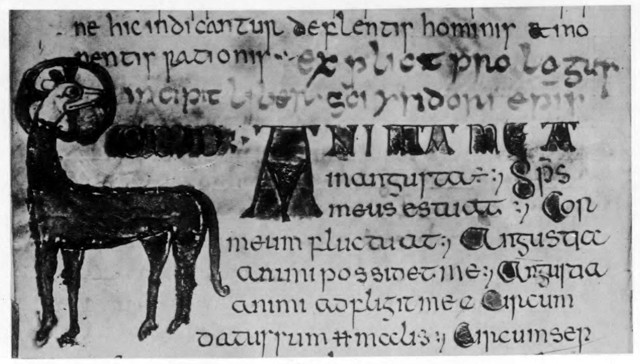 ne hic indicantur deflentis hominis & mo
nentis rationis·· explicit prologus
incipit liber sci ysidori epis
ANIMA MEA
inangustia ÷ ;, Sps
meus estuat :, Cor
meum fluctuat :, Angustia
animi possidet me :, Angustia
animi adfligit me Circum
datussum malis :, Circumsep